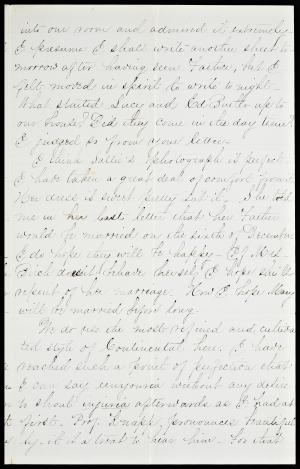 into our room and admired it extremely.
I presume I shall write another sheet to-
morrow after having seen Father, but I
felt moved in spirit to write to-night.
What started Lucy and Ed Smith up to
our house? Did they come in the day time?
I judged so from your letter.
I think Sallie's photograph is perfect.
I have taken a great deal of comfort from it.
Her dress is sweet pretty isn't it. She told
me in her last letter that her Father
would be married on the sixth of December
I do hope they will be happy. If Mrs.
doesn't behave herself I hope she'll
repent of her marriage. How I hope Mary
will be married before long.
We do use the most refined and cultiva-
ted style of Continental here. I have
reached such a point of perfection that
I can say without any desire
to shout injuria afterwards as I had at
first. Prof. Knapp pronounces beautiful-
ly. it is a treat to hear him. For that